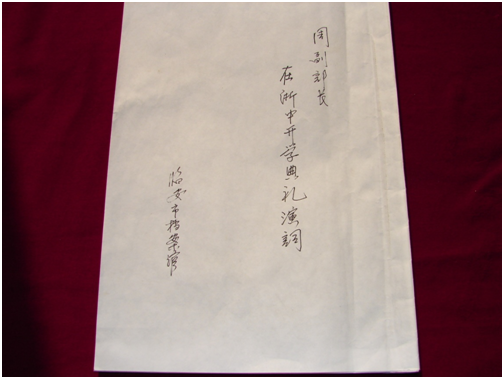 周副部长
在浙中开学典礼演詞
临安市档案馆